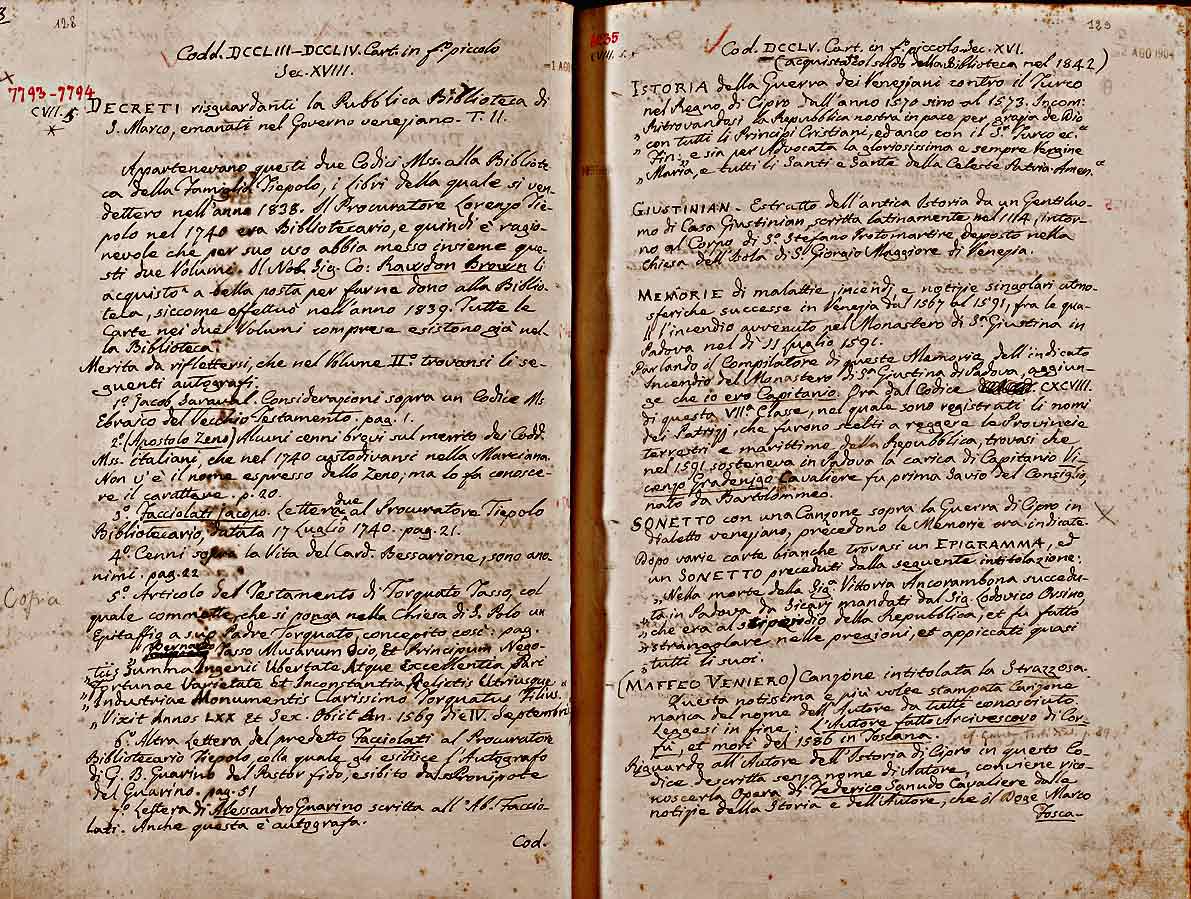 128
Codd. DCCLIII–DCCLIV. Cart. in fº piccolo
Sec. XVIII.
7793-7794
CVII. 5
DECRETI risguardanti la Pubblica Biblioteca di
S. Marco, emanati nel Governo veneziano. T. II.
Appartenevano questi due Codici Mss. alla Bibliote-
ca della Famiglia Tiepolo, i libri della quale si ven-
dettero nell'anno 1838. Il Procuratore Lorenzo Tie-
polo nel 1740 era Bibliotecario, e quindi è ragio-
nevole che per suo uso abbia messo insieme que-
sti due Volumi. Il Nob. Sig. Co: Rawdon Brown li
acquistò a bella posta per farne dono alla Biblio-
teca, siccome effettuò nell'anno 1839. Tutte le
Carte nei due Volumi comprese esistono già nel-
la Biblioteca.
Merita da riflettersi, che nel Volume IIº trovansi li se-
guenti autografi.
1º Jacob Saraval. Considerazioni sopra un Codice Ms
Ebraico del Vecchio Testamento, pag. 1.
2º (Apostolo Zeno) Alcuni cenni brevi sul merito dei Codd.
Mss. italiani, che nel 1740 custodivansi nella Marciana.
Non v'è il nome espresso dello Zeno; ma lo fa conosce-
re il carattere. p. 20.
3º Facciolati Jacopo. Lettera due al Procuratore Tiepolo
Bibliotecario, datata 17 Luglio 1740. pag. 21.
4º Cenni sopra la Vita del Card. Bessarione, sono ano-
nimi. pag. 22
5º Articolo del Testamento di Torquato Tasso, col
quale commette, che si ponga nella Chiesa di S. Polo un
Epitaffio a suo Padre Torquato, concepito così: pag.
Bernardo Tasso Musarum Ocio, Et Principum Nego-
tiis, Summa Ingenii Ubertate Atque Excellentia Pari
„Fortunae Varietate Et Inconstantia Relictis Utriusque
„Industriae Monumentis Clarissimo Torquatus Filius.
„Vixit Annos LXX Et Sex. Obiit An. 1569 die IV. Septembri
6º Altra Lettera del predetto Facciolati al Procuratore
Bibliotecario Tiepolo, colla quale gli esibisce l'Autografo
di G. B. Guarino del Pastor fido, esibito dal Pronipote
del Guarino. pag. 51
7º Lettera di Alessandro Guarino scritta all'Ab. Faccio-
lati. Anche questa è autografa.
Cod.
Copia
129
CVIII. 5.
AGO 1904
Cod. DCCLV. Cart. in fº piccolo. Sec. XVI.
(acquistato col soldo della Biblioteca nel 1842)
ISTORIA della Guerra dei Veneziani contro il Turco
nel Regno di Cipro dall'anno 1570 sino al 1573. Incom:
„Ritrovandosi la Repubblica nostra in pace per grazia de Dio
„con tutti li Principi Cristiani, ed anco con il Sr Turco ec.ª
„Fin: e sia per Advocata la gloriosissima e sempre Vergine
„Maria, e tutti li Santi e Sante della Celeste Patria. Amen.
GIUSTINIAN - Estratto dell'antica Istoria da un Gentiluo-
mo di Casa Giustinian, scritta latinamente nel 1114, intor-
no al Corpo di Sº Stefano Protomartire deposto nella
Chiesa dell'Isola di Sº Giorgio Maggiore di Venezia.
MEMORIE di malattie, incendi, e notizie singolari atmo-
sferiche successe in Venezia dal 1567 al 1591, fra le qua-
li l'incendio avvenuto nel Monastero di Sª Giustina in
Padova nel dì 11 Luglio 1591.
Parlando il Compilatore di queste Memorie dell'indicato
Incendio del Monastero di Sª Giustina di Padova, aggiun-
ge che io ero Capitanio. Ora dal Codice CXCVIII.
di questa VIIª Classe, nel quale sono registrati li nomi
dei Patrizj, che furono scelti a reggere le Provincie
terrestri e marittime della Repubblica, trovasi che
nel 1591 sosteneva in Padova la carica di Capitanio Vi-
cenzo Gradenigo Cavaliere fu prima Savio del Consiglio,
nato da Bartolommeo.
SONETTO con una Canzone sopra la Guerra di Cipro in
dialetto veneziano, precedono le Memorie ora indicate.
Dopo varie carte bianche trovasi un EPIGRAMMA, ed
un SONETTO preceduti dalla seguente intitolazione:
„Nella morte della Sigª Vittoria Ancorambona succedu-
„ta in Padova da Sicarj mandati dal Sig. Lodovico Orsino,
„che era al stipendio della Repubblica, et fu fatto
„strangolare nelle preggioni, et appiccati quasi
„tutti li suoi.
(MAFFEO VENIERO) Canzone intitolata la Strazzosa.
Questa notissima e più volte stampata Canzone
manca del nome dell'Autore da tutti conosciuto.
Leggesi in fine: L'Autore fatto Arcivescovo di Cor-
fù, et morì del 1586 in Toscana.
Riguardo all'Autore dell'Istoria di Cipro in questo Co-
dice descritta senza nome di Autore, conviene rico-
noscerla Opera di Federico Sanudo Cavaliere dalle
notizie della Storia e dell'Autore, che il Doge Marco
Fosca-